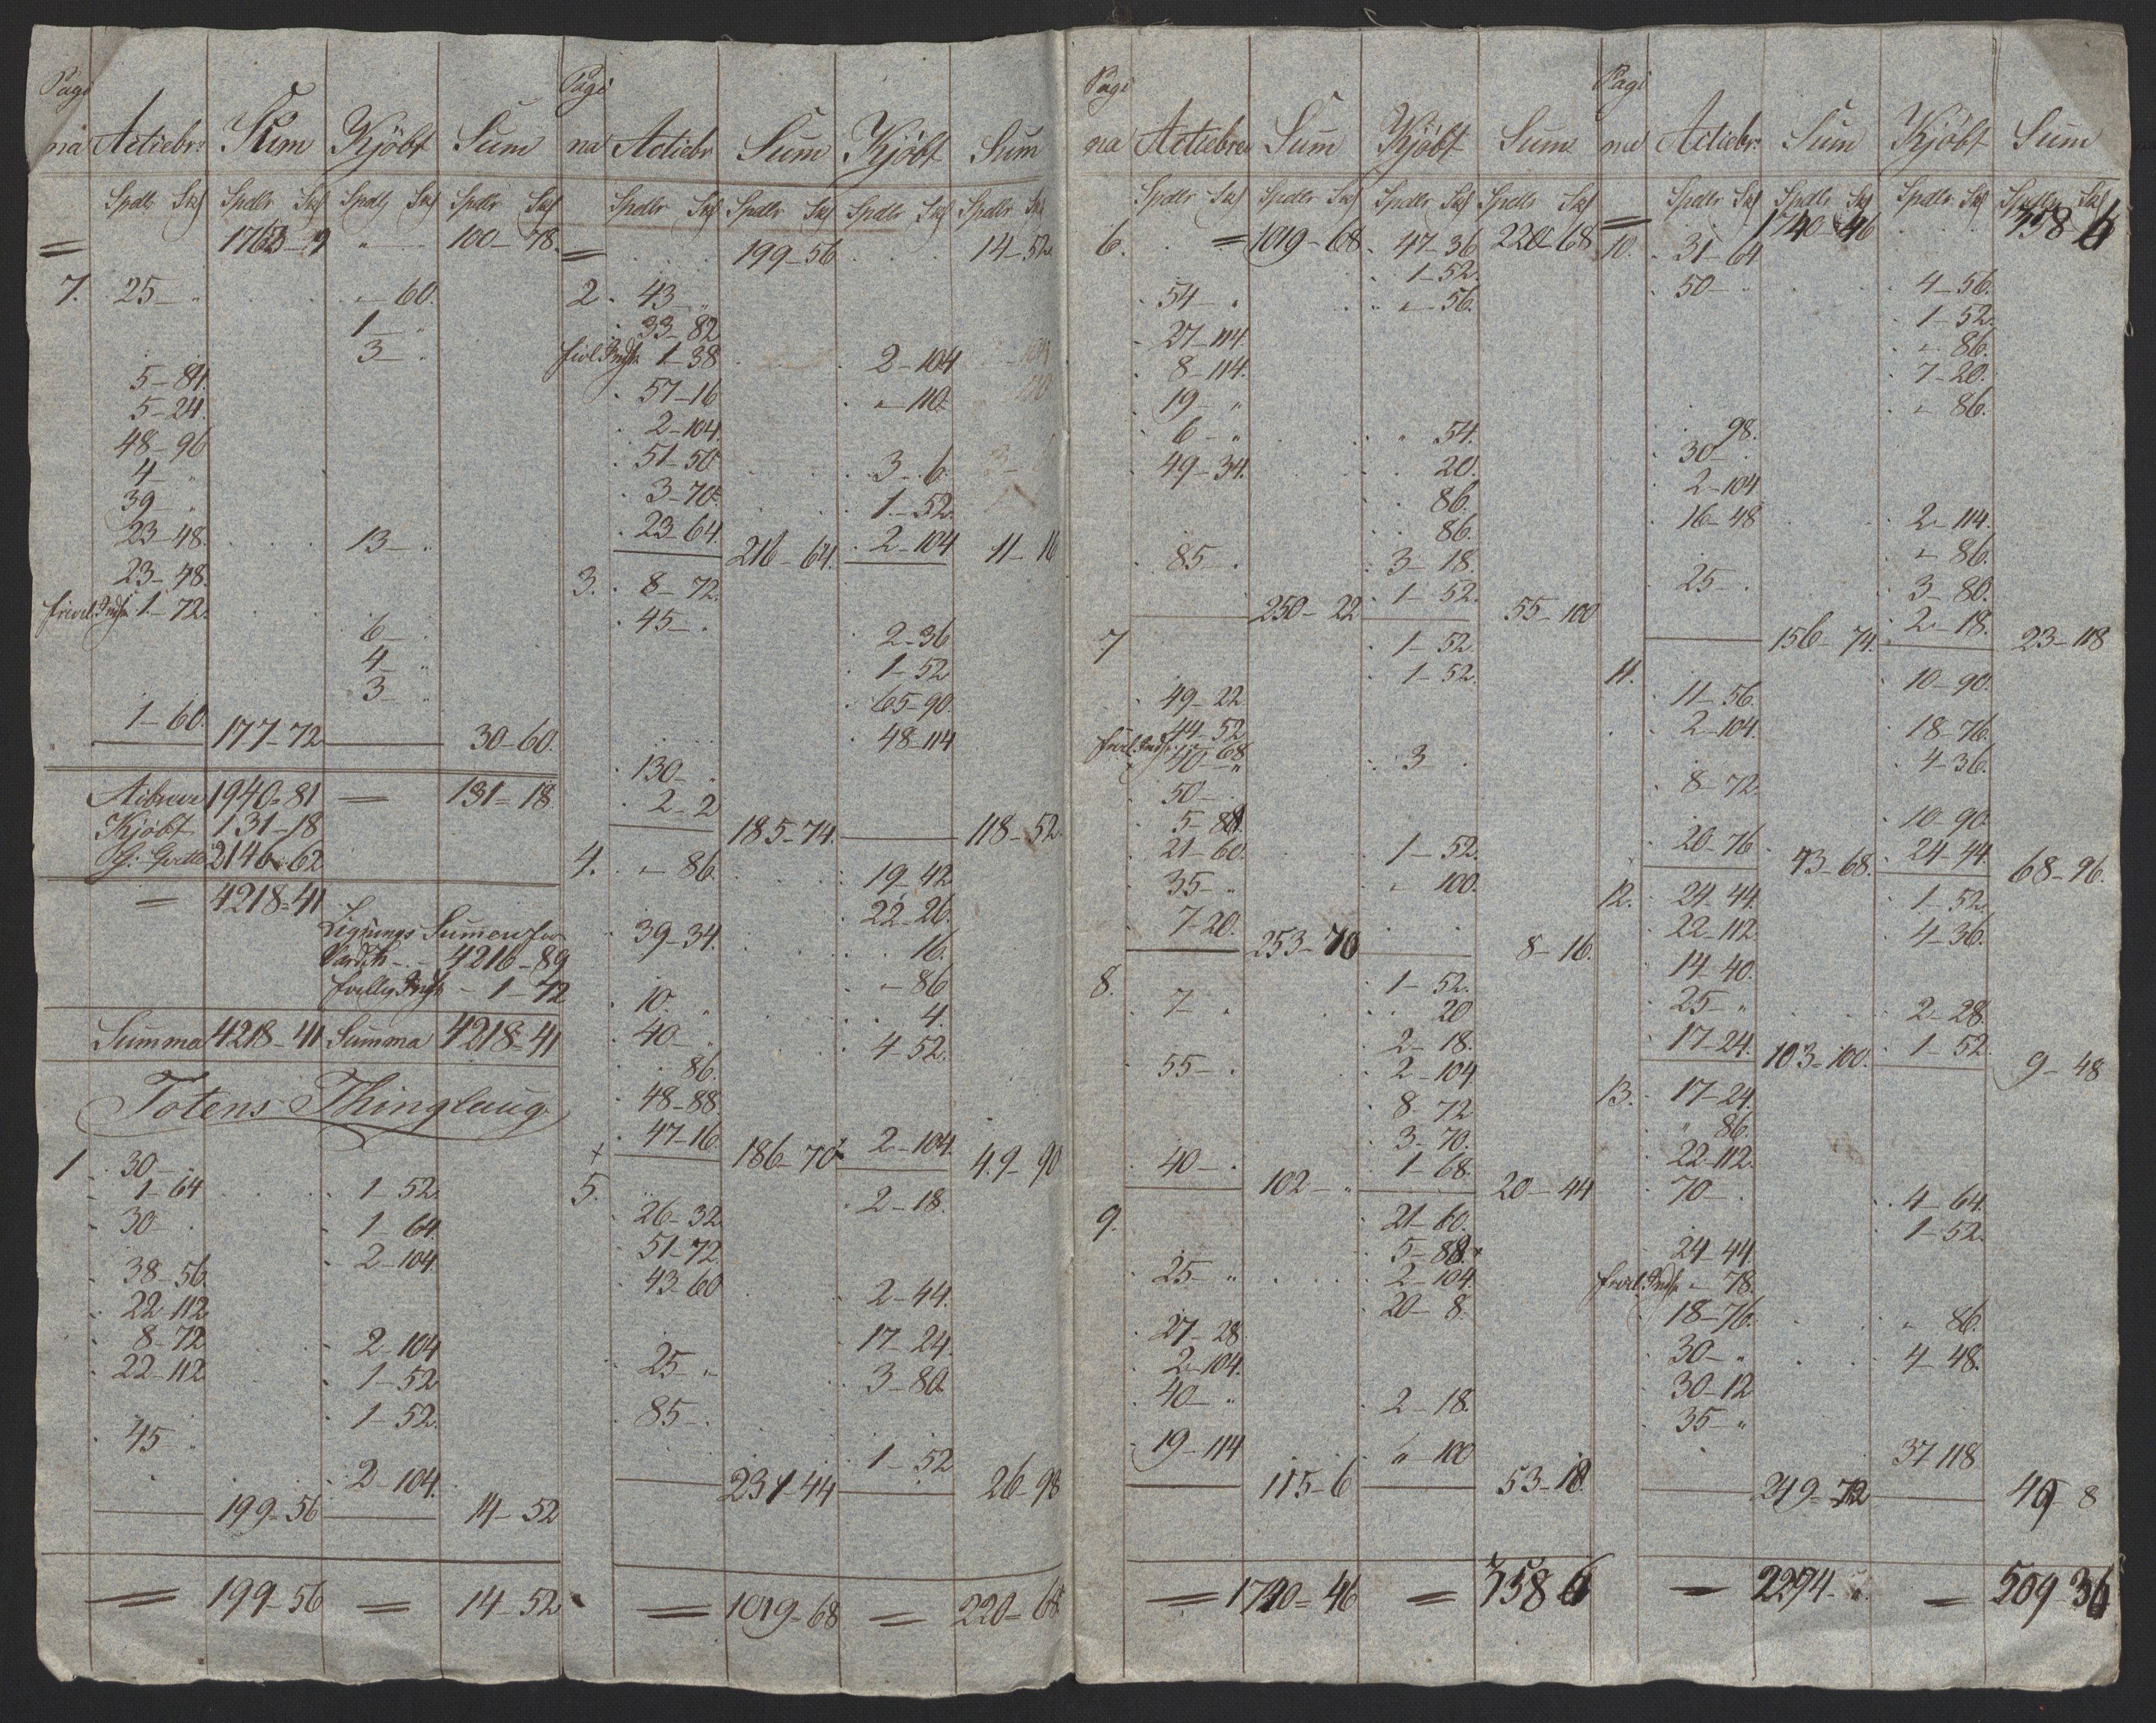 Pagi
na Actiebr: Sum Kjöbt Sum
Spdlr Sk Spdlr Sk Spdlr Sk Spdlr Sk
= 1763-9 " 100-78.
7. 25- " "-60.
1- "
3- "
5-84.
5-24.
48-96
4- "
39- "
23-48. 13- "
23-48.
frivil. Indsk. 1-72.
6- "
4- "
3- "
1-60. 177-72 30-60.
1940=81 = 131=18
Kjöbt 131-18
2146-62
= 4218=41
Lignings Sumen for
4216-89
1-72
Summa 4218-41 Summa 4218=41
Totens Thinglaug
1. 30-
1-64 1-52.
30- 1-64.
2-104.
38-56.
22-112
8-72 2-104
22-112 1-52
1-52.
45- "
2-104.
199-56 14-52
= 199-56 = 14-52
Pagi
na Actiebr Sum Kjöbt Sum
Spdlr Sk Spdlr Sk Spdlr Sk Spdlr Sk
= 199-56 14-52
2. 43- "
33-82
frivl. Indsk. 1-38 2-104
57-16 "-110.
2-104.
51-50 3-6.
3-70. 1-52.
23-64. 216-64. 2-104 11-16
3. 8-72.
45- . 2-36
1-52
65-90.
48-114
130- "
2-2
185-74. 118-52.
4. "-86. 19-42
22-26.
39-34. 16.
"-86
10. " 4.
40- " 4-52.
86.
48-88.
47-16. 186-70 2-104. 49-90
5. 2-18.
26-32
51-72.
43-60 2-44.
17-24.
25- " 3-80.
85- .
1-52
231-44 26-98
= 1019-68 = 220=68
Pagi
na Actiebre Sum Kjöbt Sum
Spdlr Sk Spdlr Sk Spdlr Sk Spdlr Sk
6. = 1019-68. 47-36 220-68
1-52.
54- " "-56.
27-114.
8-114.
19- "
6- " " 54.
49-34. 20.
86.
86.
85- . 3-18.
250-22 1-52. 55-100
7 1-52.
1-52.
49-22.
44-52
frivil. Indsk. "-68
40-" 3 .
50- .
5-88.
21-60. 1-52.
35- " "-100.
7-20.
253-70 8-16.
8. 1-52.
7- . 20
2-18.
55- . 2-104
8-72
3-70.
40- . 1-68.
102-" 20-44
9. 21-60.
5-88.
25- " 2-104.
20-8.
27-28
2-104.
40- " 2-18.
19-114 " 100
115-6 53-18.
= 1740=46 = 358 6
Pagi
na Actiebr: Sum Kjöbt Sum
Spdlr Sk Spdlr Sk Spdlr Sk Spdlr Sk
= 1740-46 358-6
10. 31-64
50- " 4-56.
1-52.
"-86.
7-20.
"-86.
98.
30- .
2-104
16-48 2-114.
"-86.
25- . 3-80.
2-18.
156-74. 23-118
11. 10-90.
11-56.
2-104. 18-76.
4-36.
8-72.
10-90.
20-76. 73-68. 24-44. 68-96.
12. 24-44. 1-52.
22-112 4-36.
14-40.
25- " 2-28.
17-24. 103-100. 1-52. 9-48
13. 17-24.
" 86.
22-112.
70- . 4-64.
1-52.
24-44
frivil. Indsk. "-78.
18-76. " 86.
30- " 4-48.
30-12
35- "
37-118
219-72 49-8
= 2294- " = 509-36